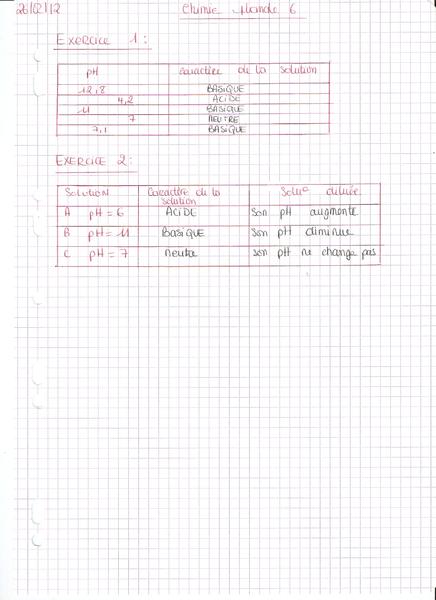 26/02/12 Chimie Monde 6
Exercice 1 :
pH Caractère de la solution
12,8 BASIQUE
4,2 ACIDE
11 BASIQUE
7 NEUTRE
7,1 BASIQUE
EXERCICE 2 :
Solution Caractère de la solution Solu° diluée
A pH = 6 ACIDE Son pH augmente
B pH = 11 BASIQUE Son pH diminue
C pH = 7 neutre son pH ne change pas